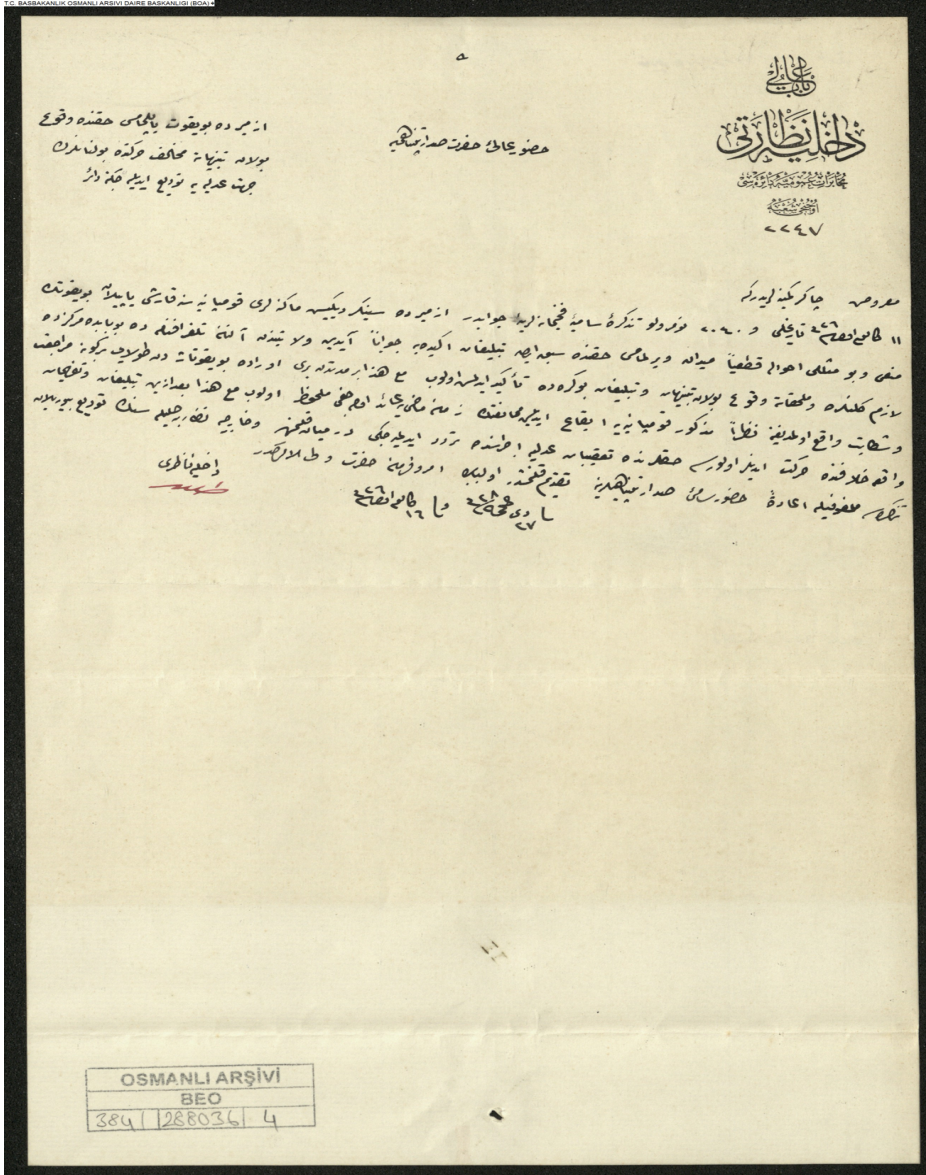 T.C. BASBAKANLIK OSMANLI ARSIVI DAIRE BASKANLIGI (BOA)
٥
باب عالی
داخلیه نظارتی
مخابرات عمومیه دائره‌سی
اوچنجی شعبه
٢٢٤٧
حضور عالی حضرت صدارتپناهی‌یه
ازمیرده بویقوت یاپلمامسی حقنده وقوع
بولان تنبیهاته مخالف حرکتده بولنانلرك
جهت عدلیه‌یه تودیع ایدیله‌جكنه دائر
معروض چاکر کمینه‌لریدرکه
١١ کانون اول ٣٢٦ تاریخلی و ٣٠٤٠ نومرولو تذکرهٔ سامیهٔ فخیمانه‌لرینه جوابدر ازمیرده سینکر دیکیش ماکنه‌لری قومپانیه‌سنه قارشی یاپیلان بویقوتك
منعی وبو مثللی احواله قطعیاً میدان ویرلمامسی حقنده تبلیغات اکیده‌یه جواباً آیدین ولایتندن آلنان تلغرافنامه‌ده بو بابده مرکزده
لازم کلنلره وملحقاته وقوع بولان تنبیهات وتبلیغات بو کره‌ده تأکید ایدلمش اولوب مع هذا بر مدتدنبری اوراده بویقوتاژدن طولایی بر کونه مراجعت
وشکایت واقع اولمدیغنه نظراً مذکور قومپانیه‌یه ایقاع ایدیلن ممانعتك زمان ماضی‌یه عائد اولمسی ملحوظ اولوب مع هذا بعد ازین تبلیغات
واقعه خلافنده حرکت ایدنلر اولورسه حقلرنده تعقیبات عدلیه اجراسنده تردد ایدیلمیه‌جکی در میان قلنمش وخارجیه نظارت جلیله‌سنك تودیع بیوریلان
تذکره‌سی ملفوفیله اعادةً حضور سامیٔ صدارتپناهیلرینه تقدیم قلنمشدر اولبابده امر وفرمان حضرت ولی الامرکدر
فی ٢٧ ذی الحجه ٣٢٨ وفی ١٦ کانون اول ٣٢٦
داخلیه ناظری
OSMANLI ARŞİVİ
BEO
384 288036 4